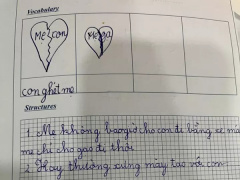 Vocabulary
Mẹ con
Mẹ gà
con ghét mẹ
Structures
1. Mẹ không bao giờ cho con đi bằng xe má
mẹ chỉ cho gao đi thôi
2. Hay thường xưng mày tao với con